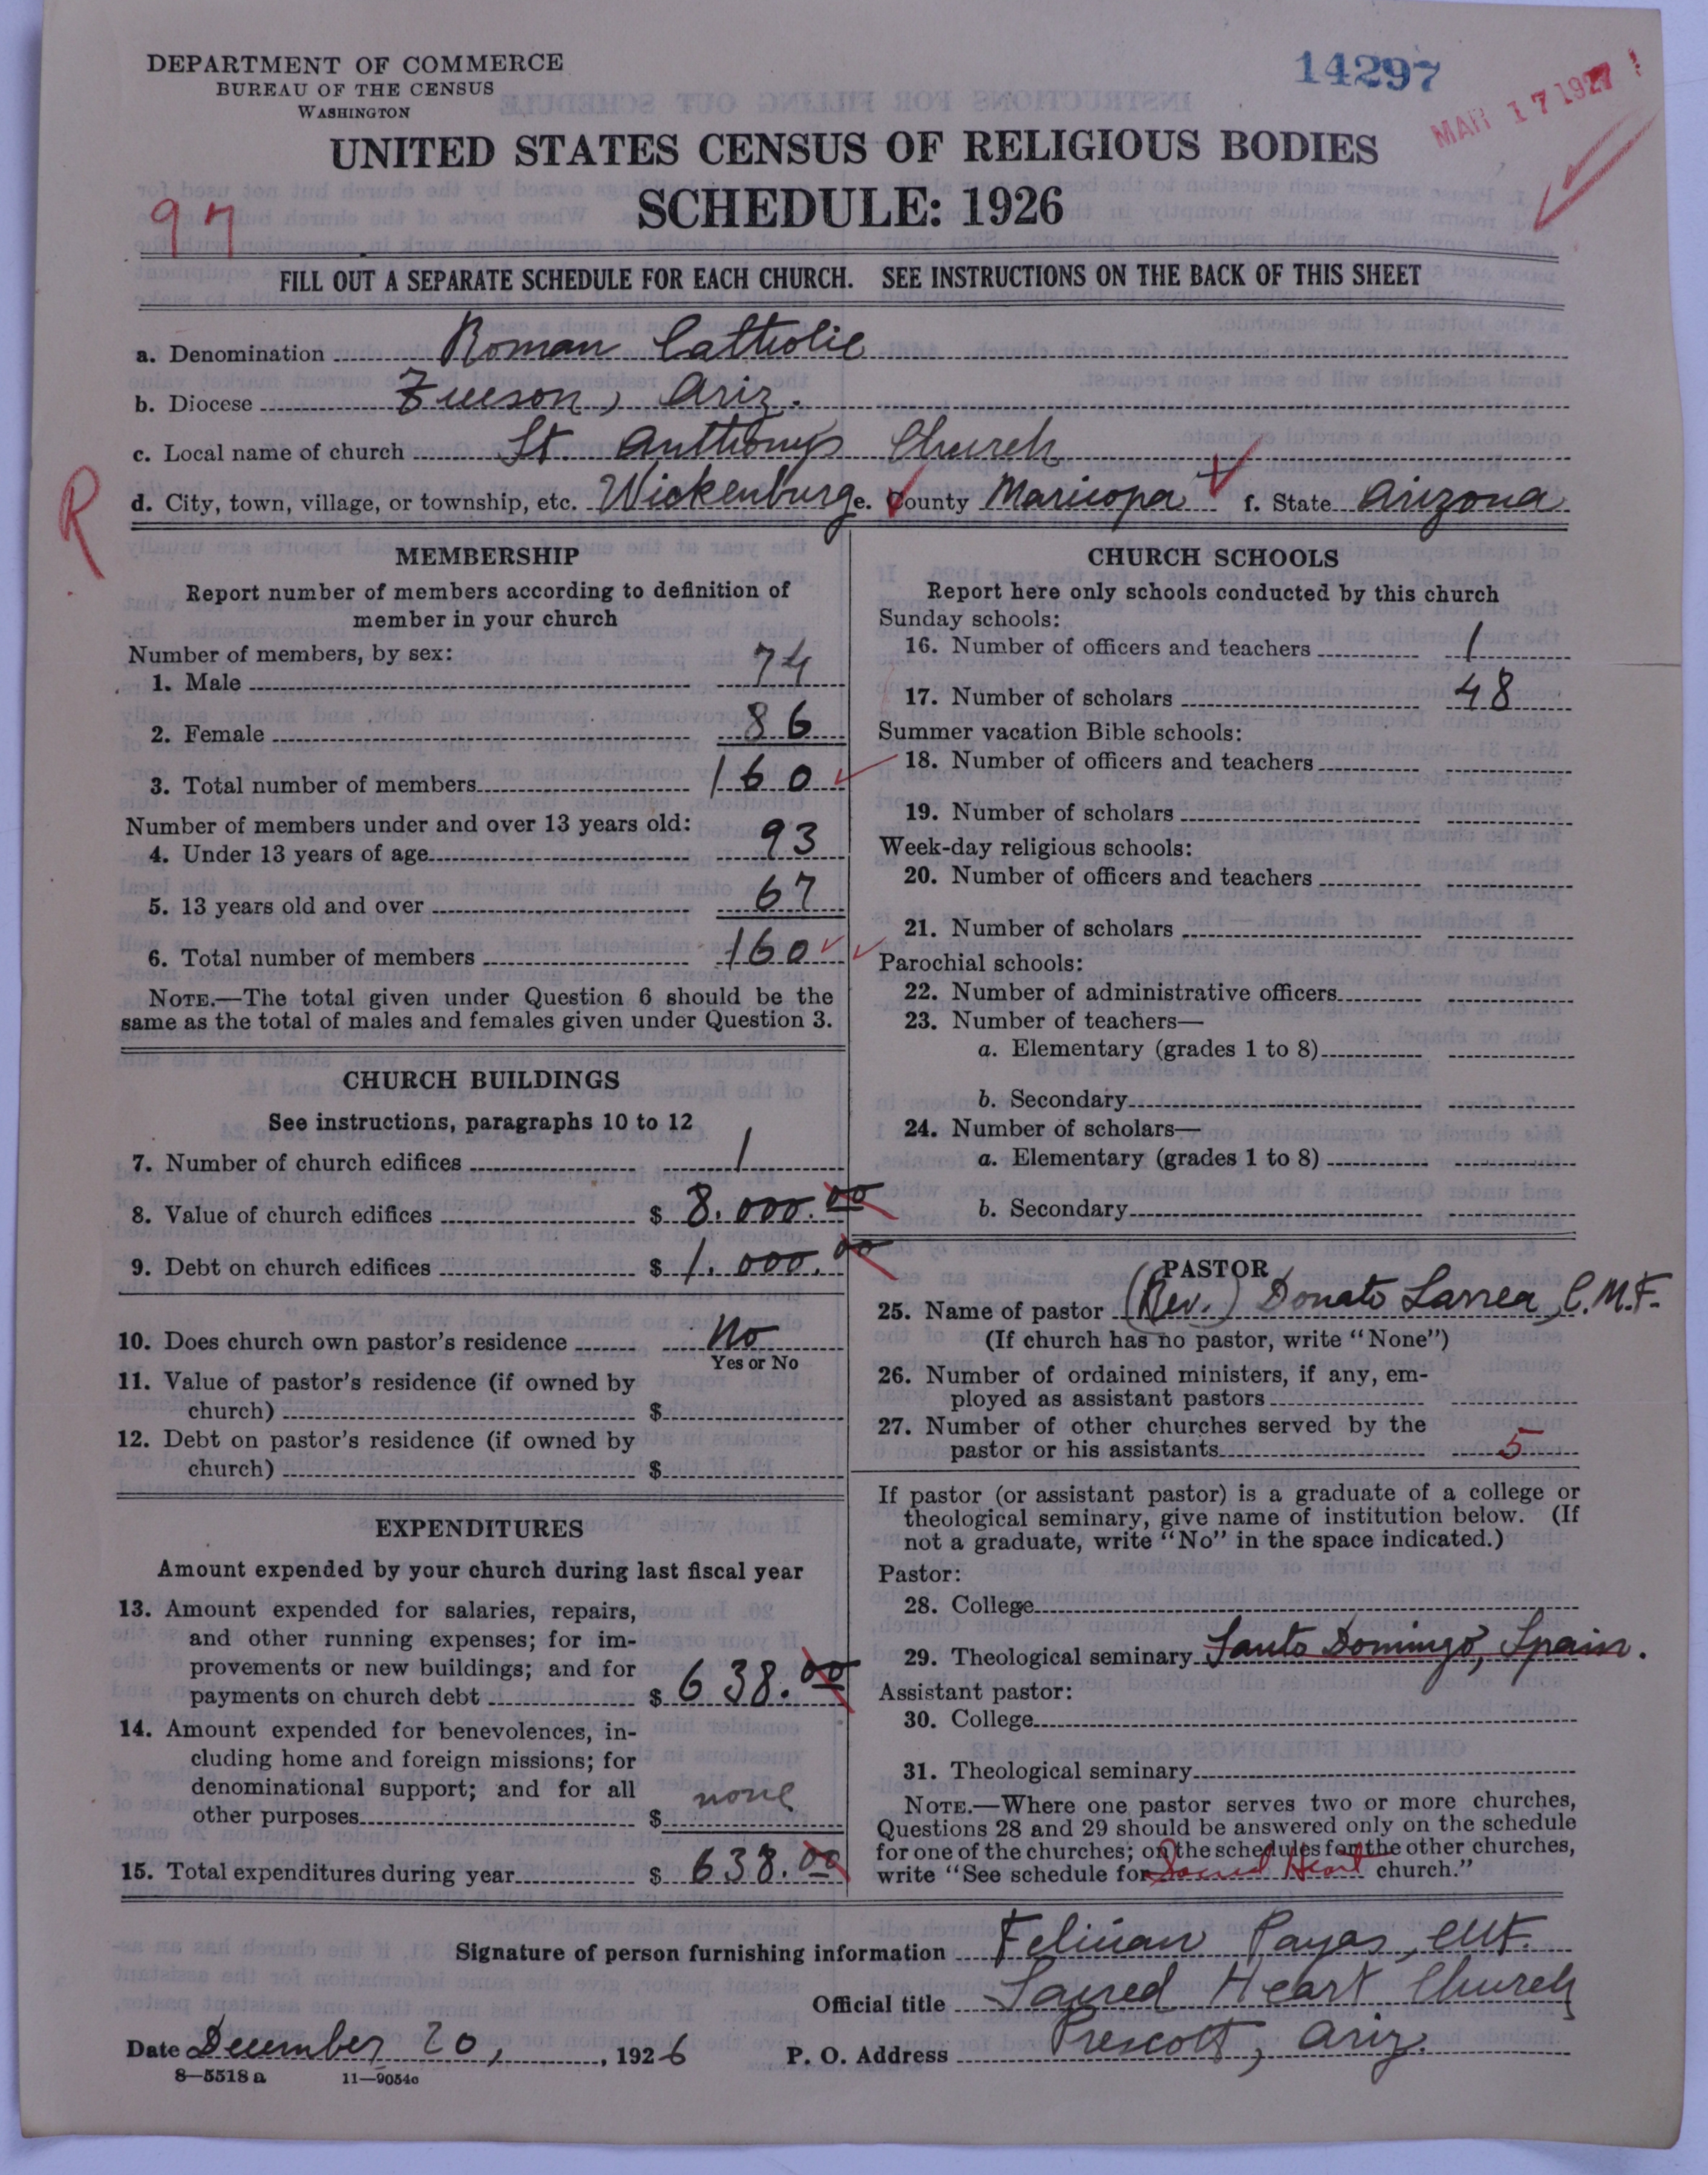 DEPARTMENT OF COMMERCE
BUREAU OF THE CENSUS
WASHINGTON
14297
MAR 17 1927
UNITED STATES CENSUS OF RELIGIOUS BODIES
SCHEDULE: 1926
97
FILL OUT A SEPARATE SCHEDULE FOR EACH CHURCH. SEE INSTRUCTIONS ON THE BACK OF THIS SHEET
a. Denomination Roman Catholic
b. Diocese Tucson, Ariz.
c. Local name of church St. Anthonys Church
R
d. City, town, village, or township, etc. Wickenburg e. County Maricopa f. State Arizona
MEMBERSHIP
Report number of members according to definition of
member in your church
Number of members, by sex:
1. Male 74
2. Female 86
3. Total number of members 160
Number of members under and over 13 years old:
4. Under 13 years of age 93
5. 13 years old and over 67
6. Total number of members 160
NOTE.—The total given under Question 6 should be the
same as the total of males and females given under Question 3.
CHURCH BUILDINGS
See instructions, paragraphs 10 to 12
7. Number of church edifices 1
8. Value of church edifices $ 8.000.00
9. Debt on church edifices $ 1.000.00
10. Does church own pastor's residence No
Yes or No
11. Value of pastor's residence (if owned by
church) $
12. Debt on pastor's residence (if owned by
church) $
EXPENDITURES
Amount expended by your church during last fiscal year
13. Amount expended for salaries, repairs,
and other running expenses; for im-
provements or new buildings; and for
payments on church debt $ 638.00
14. Amount expended for benevolences, in-
cluding home and foreign missions; for
denominational support; and for all
other purposes $ none
15. Total expenditures during year $ 638.00
CHURCH SCHOOLS
Report here only schools conducted by this church
Sunday schools:
16. Number of officers and teachers 1
17. Number of scholars 48
Summer vacation Bible schools:
18. Number of officers and teachers
19. Number of scholars
Week-day religious schools:
20. Number of officers and teachers
21. Number of scholars
Parochial schools:
22. Number of administrative officers
23. Number of teachers—
a. Elementary (grades 1 to 8)
b. Secondary
24. Number of scholars—
a. Elementary (grades 1 to 8)
b. Secondary
PASTOR
25. Name of pastor (Rev.) Donato Larrea, C.M.F.
(If church has no pastor, write "None")
26. Number of ordained ministers, if any, em-
ployed as assistant pastors
27. Number of other churches served by the
pastor or his assistants 5
If pastor (or assistant pastor) is a graduate of a college or
theological seminary, give name of institution below. (If
not a graduate, write "No" in the space indicated.)
Pastor:
28. College
29. Theological seminary Santo Domingo, Spain.
Assistant pastor:
30. College
31. Theological seminary
NOTE.—Where one pastor serves two or more churches,
Questions 28 and 29 should be answered only on the schedule
for one of the churches; on the schedules for the other churches,
write "See schedule for Sacred Heart church."
Signature of person furnishing information Felician Payas, CMF.
Official title Sacred Heart Church
Date December 20, 1926 P. O. Address Prescott, Ariz.
8—5518 a 11—9054c